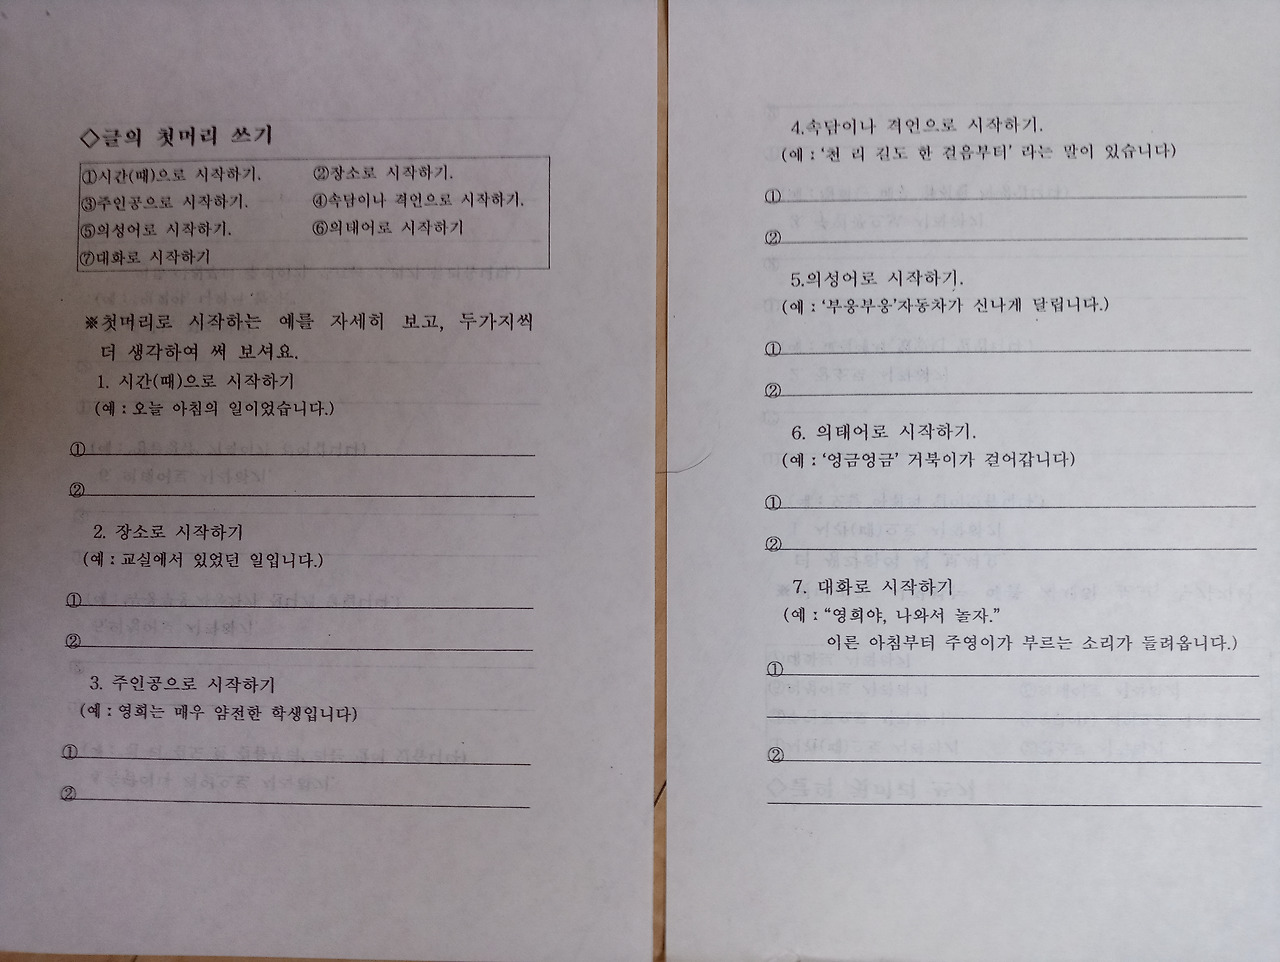 ◇글의 첫머리 쓰기
①시간(때)으로 시작하기. ②장소로 시작하기.
③주인공으로 시작하기. ④속담이나 격언으로 시작하기.
⑤의성어로 시작하기. ⑥의태어로 시작하기
⑦대화로 시작하기
※첫머리로 시작하는 예를 자세히 보고, 두가지씩
더 생각하여 써 보셔요.
1. 시간(때)으로 시작하기
(예 : 오늘 아침의 일이었습니다.)
①
②
2. 장소로 시작하기
(예 : 교실에서 있었던 일입니다.)
①
②
3. 주인공으로 시작하기
(예 : 영희는 매우 얌전한 학생입니다)
①
②
4.속담이나 격언으로 시작하기.
(예 : ‘천 리 길도 한 걸음부터’ 라는 말이 있습니다)
①
②
5.의성어로 시작하기.
(예 : ‘부웅부웅’자동차가 신나게 달립니다.)
①
②
6. 의태어로 시작하기.
(예 : ‘엉금엉금’ 거북이가 걸어갑니다)
①
②
7. 대화로 시작하기
(예 : “영희야, 나와서 놀자.”
이른 아침부터 주영이가 부르는 소리가 들려옵니다.)
①
②